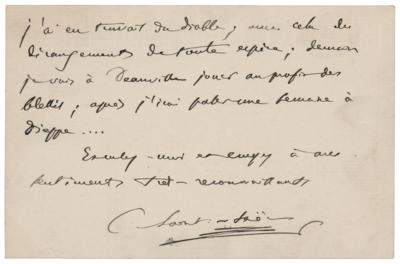 j'ai eu travail du diable ; avec cela des
dérangements de toute espèce ; demain
je vais à Deauville jouer au profit des
blessés ; après j'irai passer une semaine à
Dieppe ....
Excusez-moi et à mes
sentiments très-reconnaissants
C Saint-Saëns